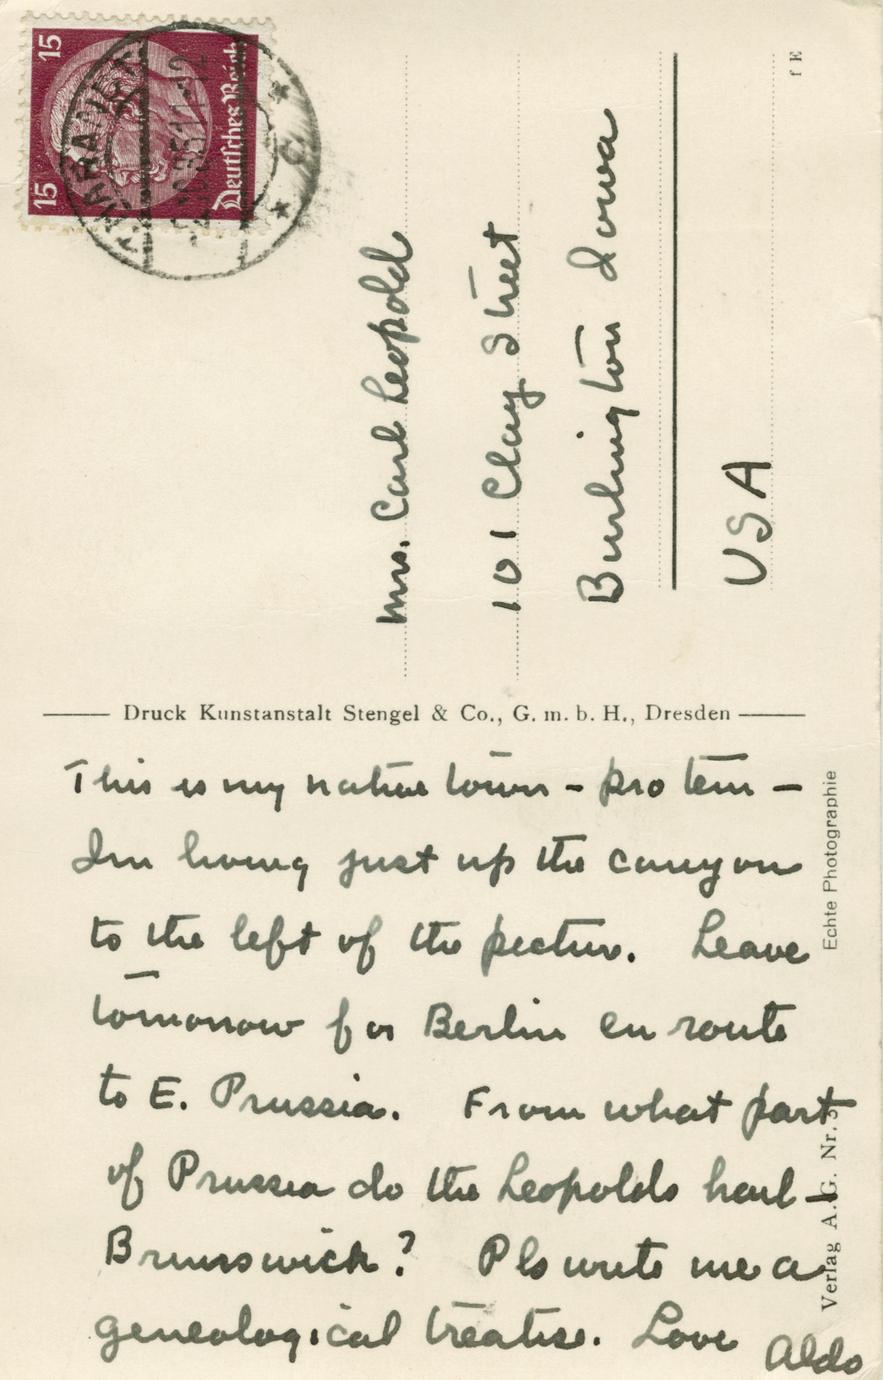 15
15
Deutsches Reich
THARANDT
C
Mrs. Carl Leopold
101 Clay Street
Burlington Iowa
USA
Druck Kunstanstalt Stengel & Co., G. m. b. H., Dresden
This is my native town – pro tem –
Im living just up the canyon
to the left of the picture. Leave
tomorrow for Berlin en route
to E. Prussia. From what part
of Prussia do the Leopolds hail –
Brunswick? Pls write me a
geneological treatise. Love
Aldo
Echte Photographie
Verlag A. G. Nr.